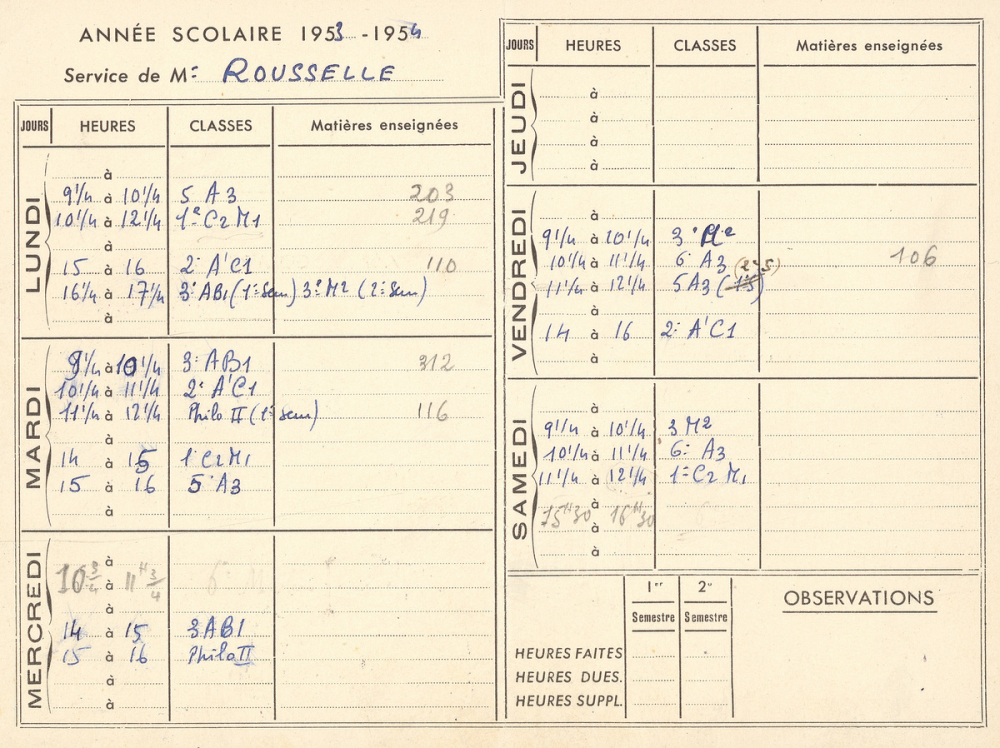 ANNÉE SCOLAIRE 1953 - 1954
Service de Mr ROUSSELLE
JOURS HEURES CLASSES Matières enseignées
LUNDI
à
9 1/4 à 10 1/4 5 A 3 203
10 1/4 à 12 1/4 1e C2 M1 219
à
15 à 16 2e A'C1 110
16 1/4 à 17 1/4 3e AB1 (1er Sem) 3e M2 (2e Sem)
à
MARDI
9 1/4 à 10 1/4 3e AB1 312
10 1/4 à 11 1/4 2e A'C1
11 1/4 à 12 1/4 Philo II (1er sem) 116
à
14 à 15 1e C2 M1
15 à 16 5e A3
à
MERCREDI
à
10 3/4 à 11H 3/4
à
14 à 15 3 AB1
15 à 16 Philo II
à
à
JOURS HEURES CLASSES Matières enseignées
JEUDI
à
à
à
à
VENDREDI
à
9 1/4 à 10 1/4 3e
10 1/4 à 11 1/4 6e A3 106
11 1/4 à 12 1/4 5 A3 (2e S)
à
14 à 16 2e A'C1
à
SAMEDI
à
9 1/4 à 10 1/4 3 M2
10 1/4 à 11 1/4 6e A3
11 1/4 à 12 1/4 1e C2 M1
à
15H30 à 16H30
à
1er Semestre 2e Semestre
HEURES FAITES
HEURES DUES.
HEURES SUPPL.
OBSERVATIONS